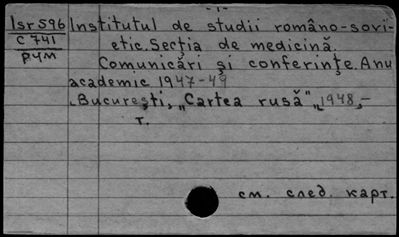 -1-
Isr 596 Institutul de studii româno-sovi-
C 741 etic. Secția de medicină.
рум Comunicări și conferințe. Anu
academic 1947-49
București, „Cartea rusă", 1948,-
т.
см. след. карт.